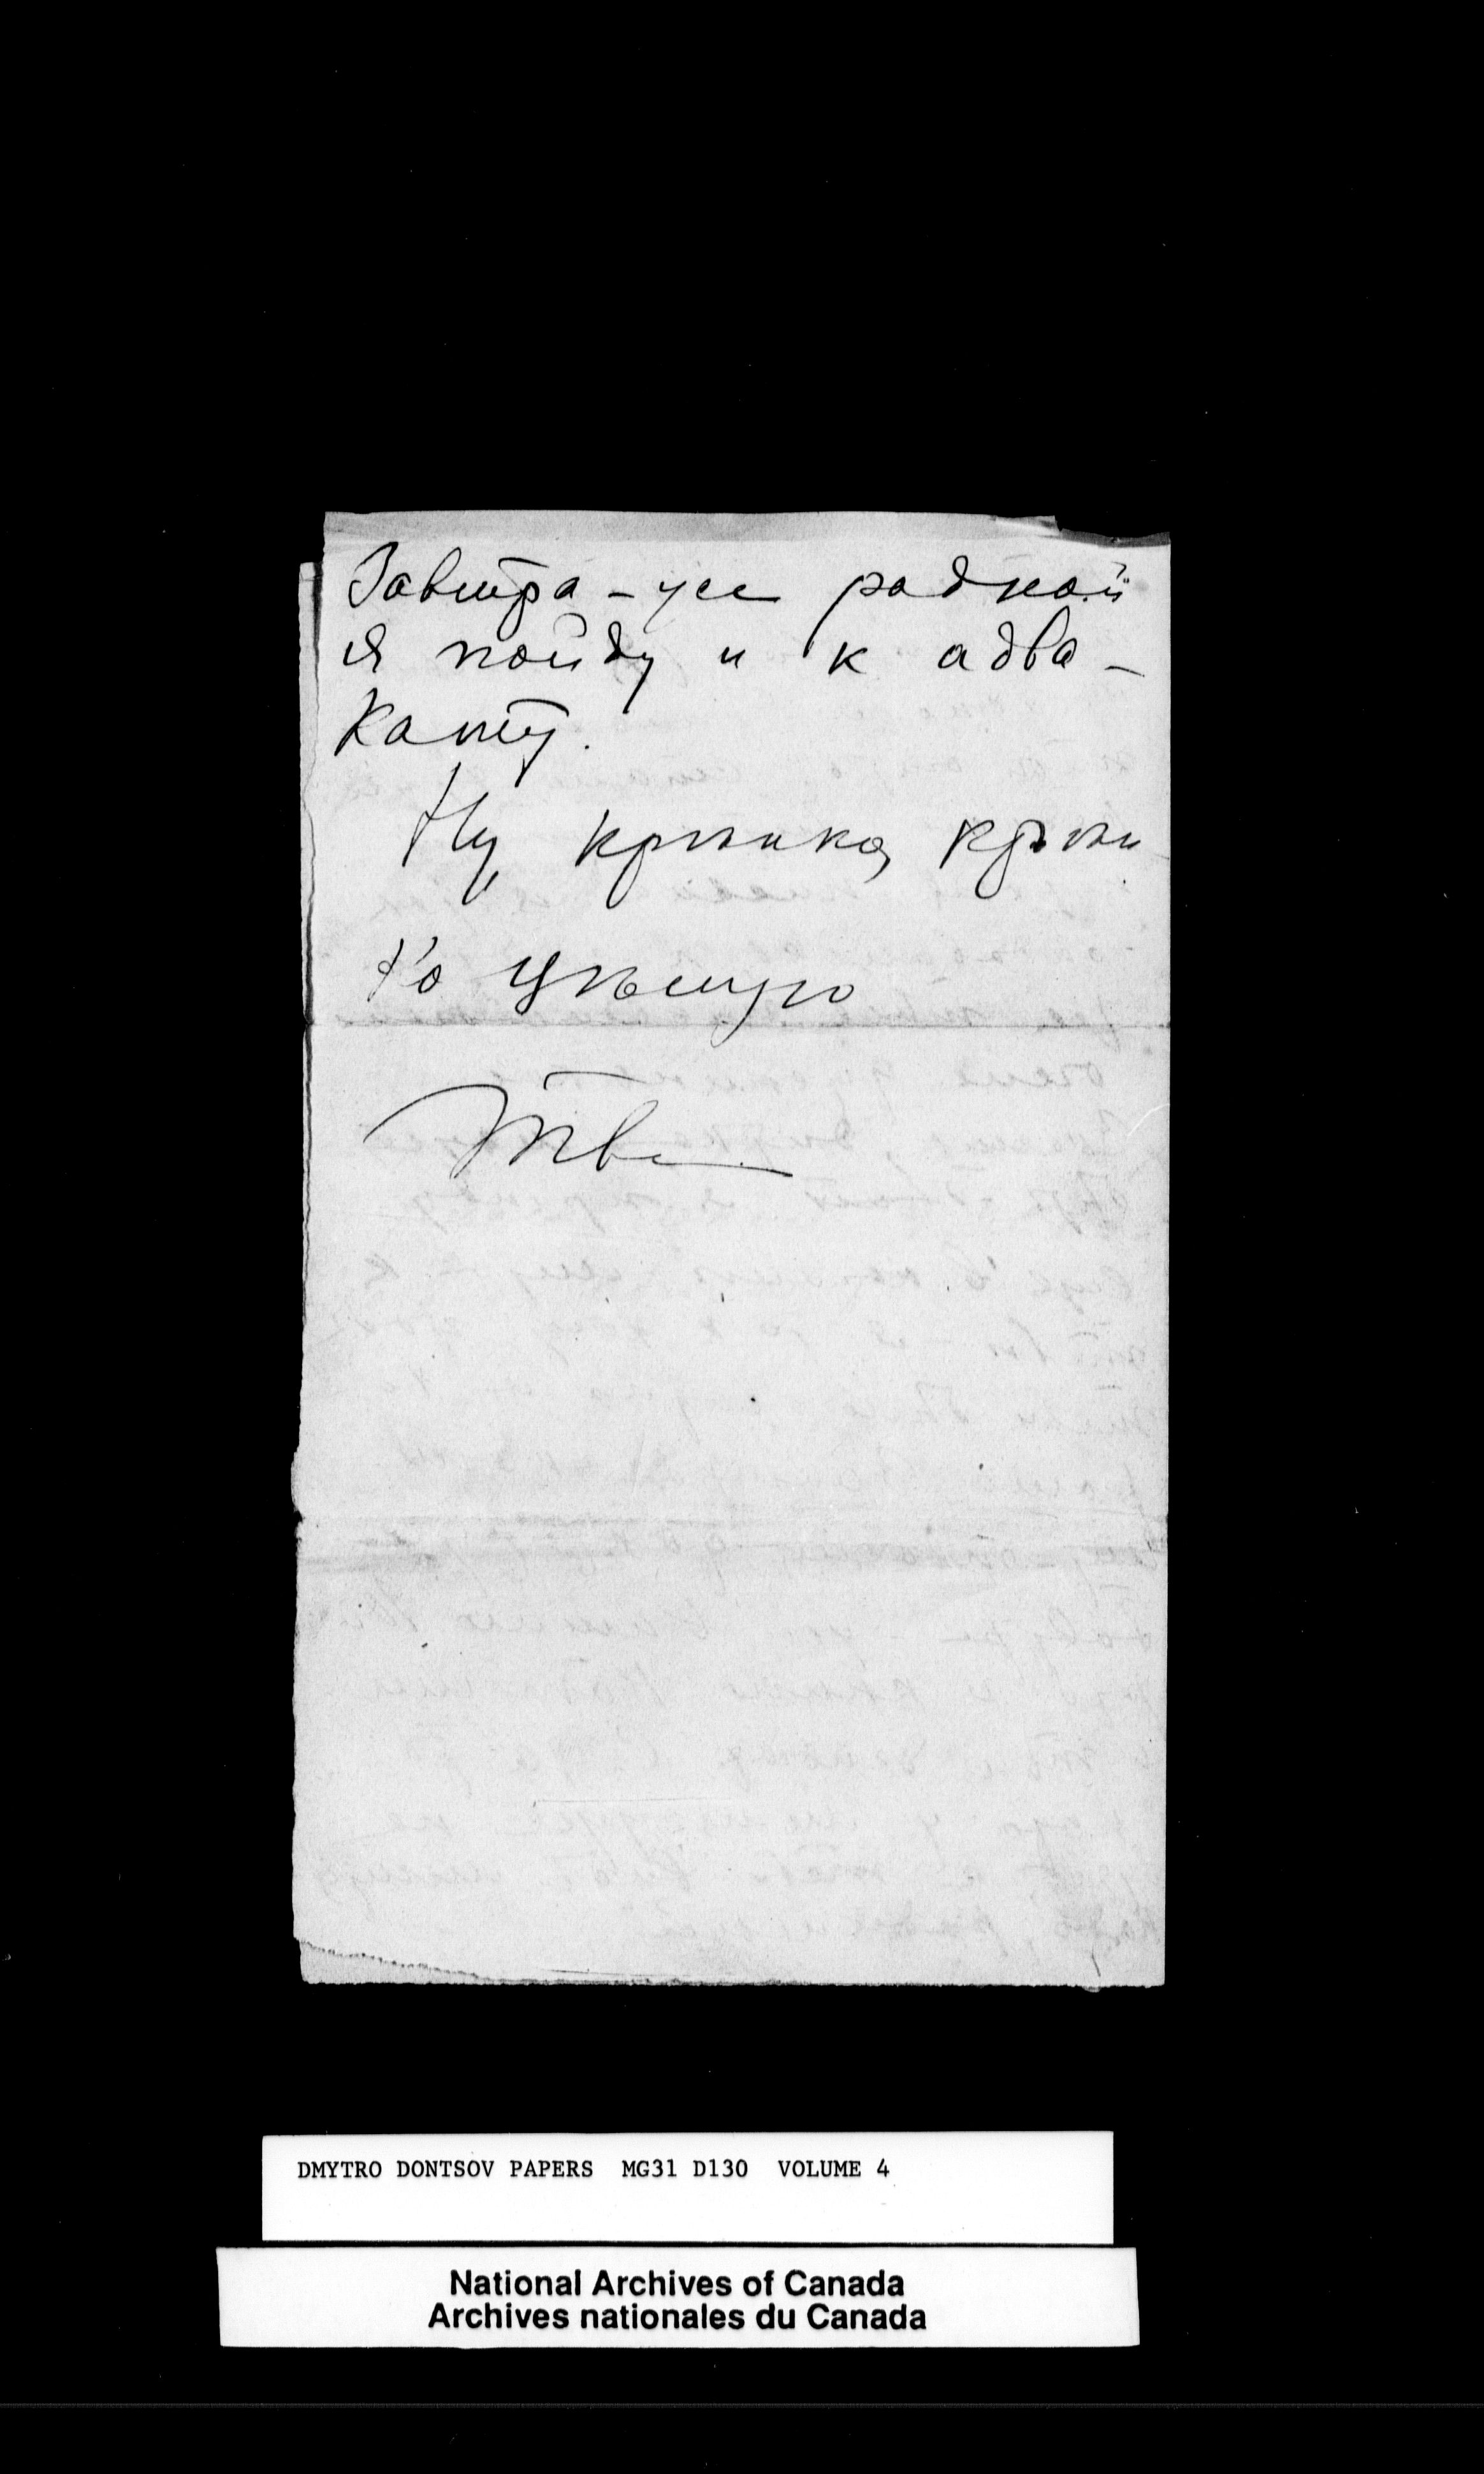 Завтра - уже родной
я пойду и к адва-
кату.
Ну, крѣпко, крѣп-
ко цѣлую
Тва
DMYTRO DONTSOV PAPERS MG31 D130 VOLUME 4
National Archives of Canada
Archives nationales du Canada